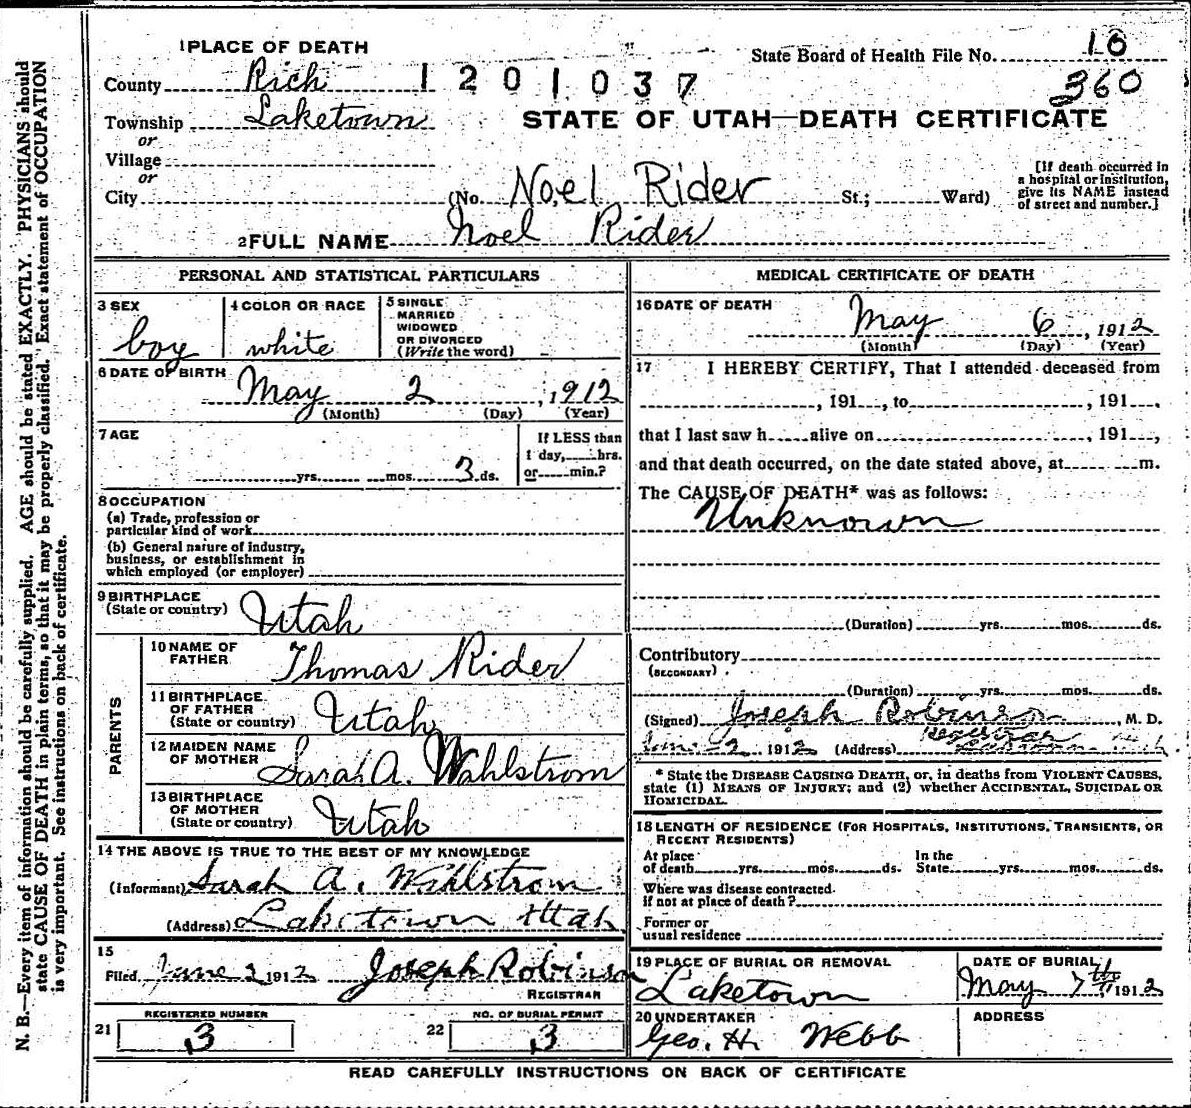 1 PLACE OF DEATH
State Board of Health File No. 10
County Rich 1201037
360
Township Laketown
STATE OF UTAH—DEATH CERTIFICATE
or
Village
or
City (No. Noel Rider St.; Ward)
[If death occurred in
a hospital or institution,
give its NAME instead
of street and number.]
2 FULL NAME Noel Rider
PERSONAL AND STATISTICAL PARTICULARS
3 SEX
boy
4 COLOR OR RACE
white
5 SINGLE
MARRIED
WIDOWED
OR DIVORCED
(Write the word)
6 DATE OF BIRTH
May 2, 1912
(Month) (Day) (Year)
7 AGE
yrs. mos. 3 ds.
If LESS than
1 day, hrs.
or min.?
8 OCCUPATION
(a) Trade, profession or
particular kind of work
(b) General nature of industry,
business, or establishment in
which employed (or employer)
9 BIRTHPLACE
(State or country) Utah
PARENTS
10 NAME OF
FATHER Thomas Rider
11 BIRTHPLACE
OF FATHER
(State or country) Utah
12 MAIDEN NAME
OF MOTHER
Sarah A. Wahlstrom
13 BIRTHPLACE
OF MOTHER
(State or country) Utah
14 THE ABOVE IS TRUE TO THE BEST OF MY KNOWLEDGE
(Informant) Sarah A. Wahlstrom
(Address) Laketown Utah
15
Filed June 2 1912 Joseph Robinson
REGISTRAR
21 REGISTERED NUMBER
3
22 NO. OF BURIAL PERMIT
3
MEDICAL CERTIFICATE OF DEATH
16 DATE OF DEATH
May 6, 1912
(Month) (Day) (Year)
17 I HEREBY CERTIFY, That I attended deceased from
, 191 , to , 191 ,
that I last saw h alive on , 191 ,
and that death occurred, on the date stated above, at m.
The CAUSE OF DEATH* was as follows:
Unknown
(Duration) yrs. mos. ds.
Contributory
(SECONDARY)
(Duration) yrs. mos. ds.
(Signed) Joseph Robinson, M. D.
Registrar
June 2 1912 (Address) Laketown
* State the DISEASE CAUSING DEATH, or, in deaths from VIOLENT CAUSES,
state (1) MEANS OF INJURY; and (2) whether ACCIDENTAL, SUICIDAL OR
HOMICIDAL.
18 LENGTH OF RESIDENCE (FOR HOSPITALS, INSTITUTIONS, TRANSIENTS, OR
RECENT RESIDENTS)
At place In the
of death yrs. mos. ds. State yrs. mos. ds.
Where was disease contracted
if not at place of death?
Former or
usual residence
19 PLACE OF BURIAL OR REMOVAL
Laketown
DATE OF BURIAL
May 7th 1912
20 UNDERTAKER
Geo. H. Webb
ADDRESS
READ CAREFULLY INSTRUCTIONS ON BACK OF CERTIFICATE
N. B.—Every item of information should be carefully supplied. AGE should be stated EXACTLY. PHYSICIANS should
state CAUSE OF DEATH in plain terms, so that it may be properly classified. Exact statement of OCCUPATION
is very important. See instructions on back of certificate.